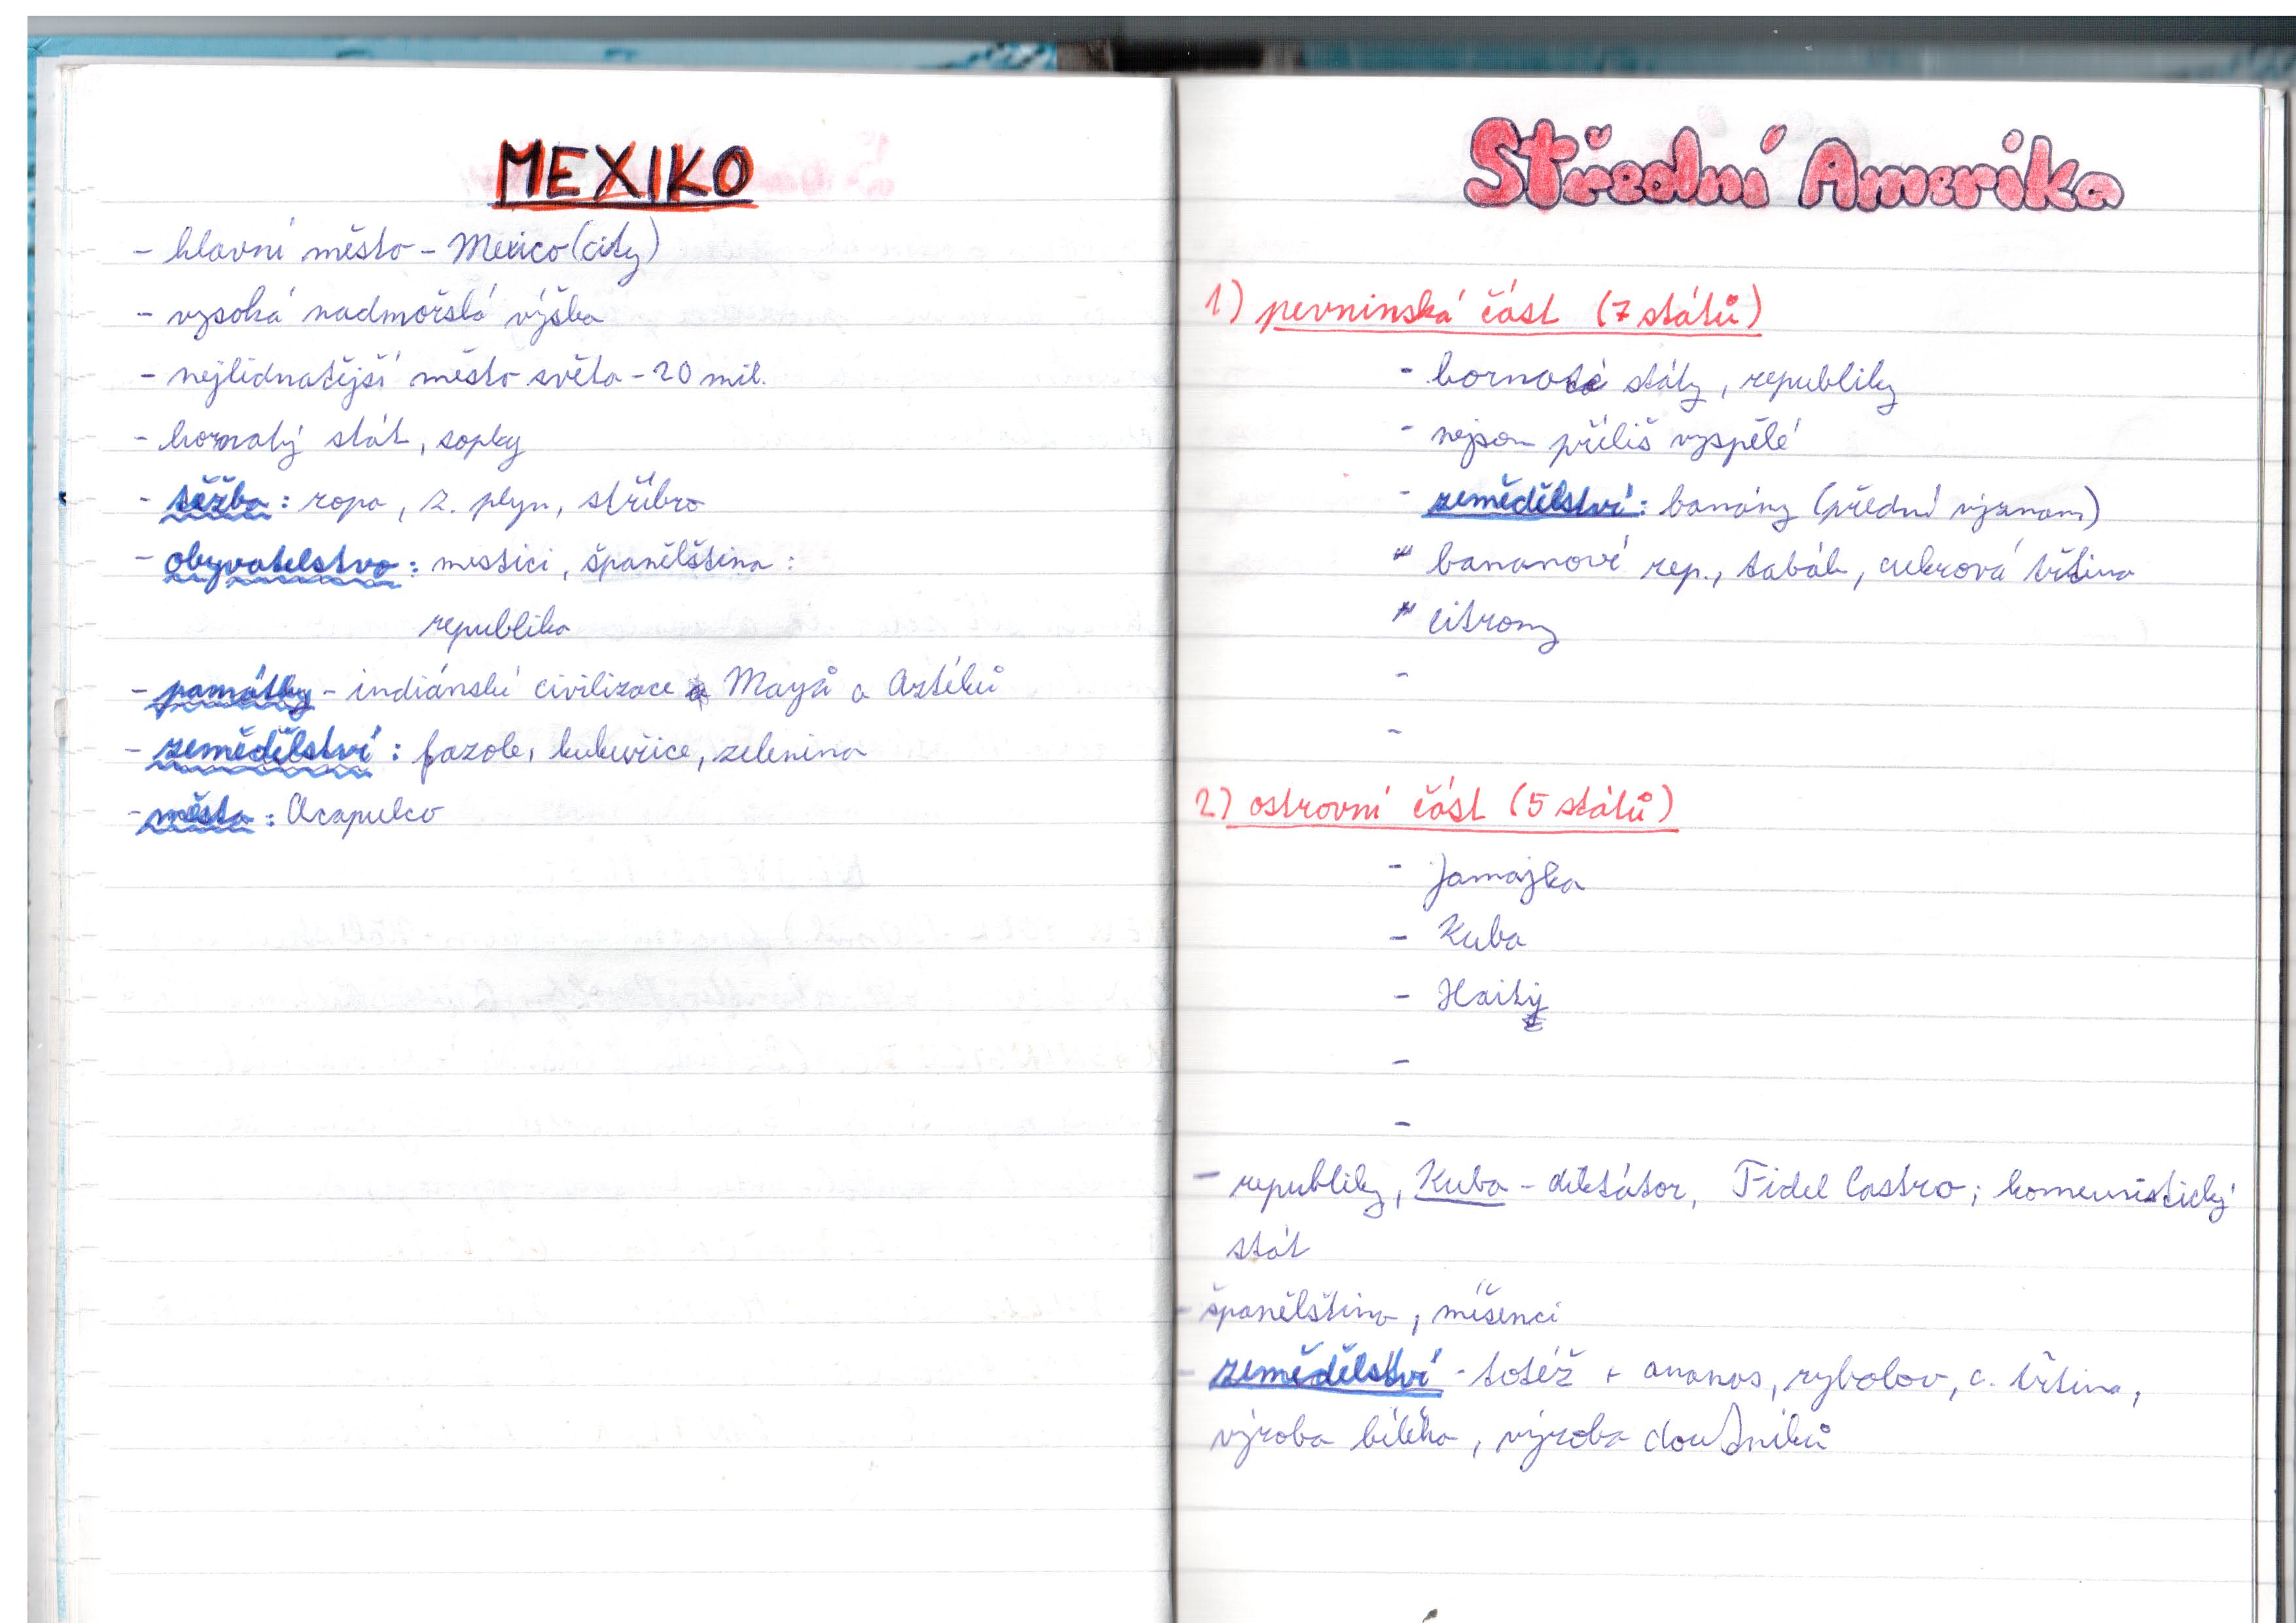 MEXIKO
- hlavní město - Mexico (city)
- vysoká nadmořská výška
- nejlidnatější město světa - 20 mil.
- hornatý stát, sopky
- těžba: ropa, z. plyn, stříbro
- obyvatelstvo: mestici, španělština:
republika
- památky - indiánské civilizace Mayů a Aztéků
- zemědělství: fazole, kukuřice, zelenina
- města: Acapulco
Střední Amerika
1) pevninská část (7 států)
- hornaté státy, republiky
- nejsou příliš vyspělé
- zemědělství: banány (přední význam)
" bananové rep., tabák, cukrová třtina
" citrony
-
-
2) ostrovní část (5 států)
- Jamajka
- Kuba
- Haity
-
-
- republiky, Kuba - diktátor, Fidel Castro; komunistický
stát
- španělština, míšenci
- zemědělství - totéž + ananas, rybolov, c. třtina,
výroba bílého, výroba doutníků